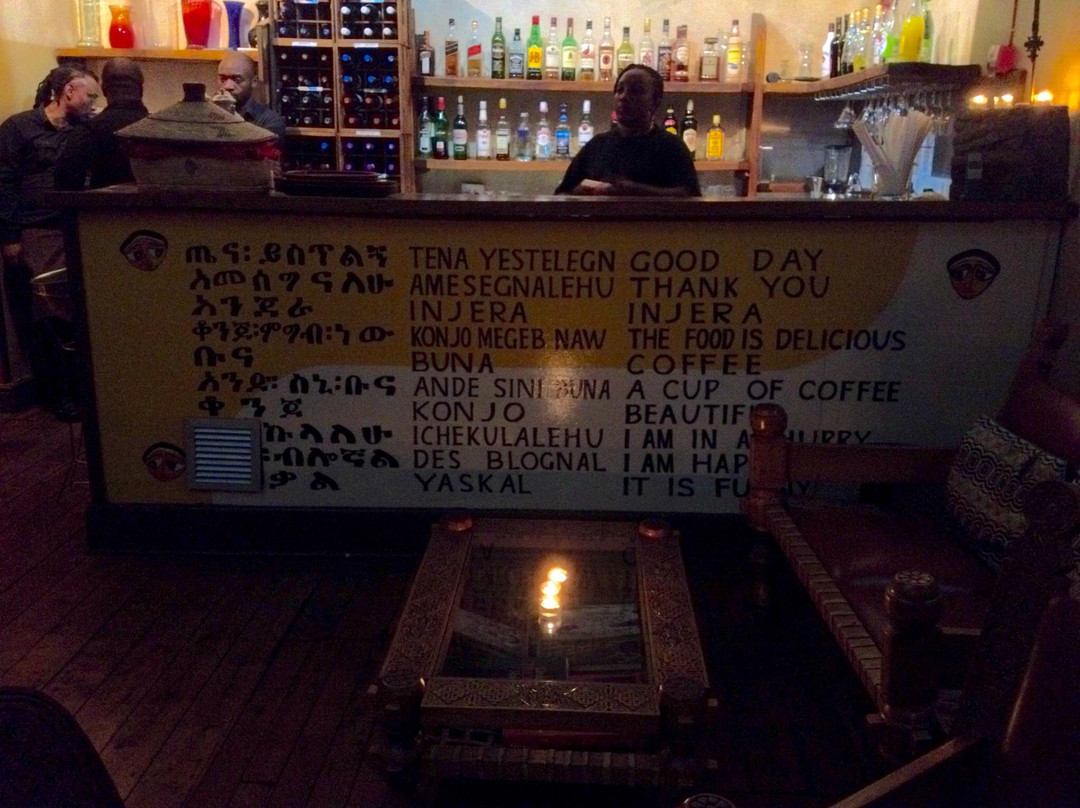 ጤና፡ይስጥልኝ TENA YESTELEGN GOOD DAY
አመሰግናለሁ AMESEGNALEHU THANK YOU
እንጀራ INJERA INJERA
ቆንጆ፡ምግብ፡ነው KONJO MEGEB NAW THE FOOD IS DELICIOUS
ቡና BUNA COFFEE
አንድ፡ስኒ፡ቡና ANDE SINI BUNA A CUP OF COFFEE
ቆንጆ KONJO BEAUTIF
ኩላለሁ ICHEKULALEHU I AM IN A HURRY
፡ብሎኛል DES BLOGNAL I AM HAP
ቃል YASKAL IT IS FU